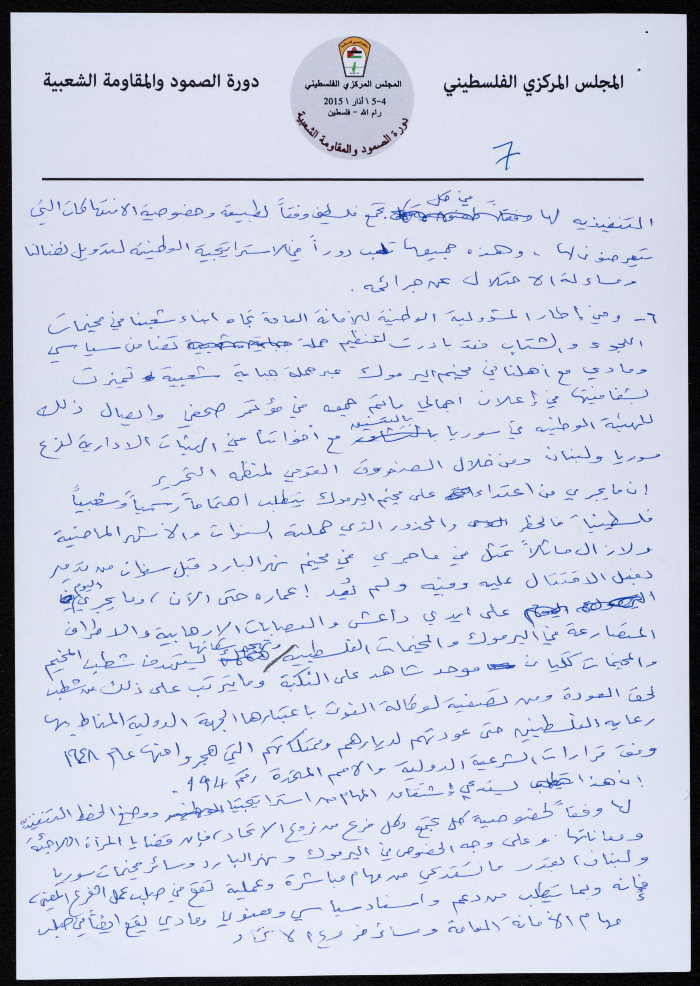 المجلس المركزي الفلسطيني
المجلس المركزي الفلسطيني
4-5 \ آذار \ 2015
رام الله - فلسطين
دورة الصمود والمقاومة الشعبية
دورة الصمود والمقاومة الشعبية
7
التنفيذيه لها في كل تجمع فلسطيني وفقاً لطبيعة وخصوصية الانتهاكات التي
يتعرضون لها ، وهذه جميعها تلعب دوراً في الاستراتيجية الوطنية لتدويل نضالنا
ومساءلة الاحتلال عن جرائمه .
٦- وفي إطار المسؤولية الوطنية للأمانة العامة تجاه ابناء شعبنا في مخيمات
اللجوء والشتات فقد بادرت لتنظيم حملة تضامن سياسي
ومادي مع أهلنا في مخيم اليرموك عبر حملة جباية شعبية تميزت
بشفافيتها في إعلان اجمالي ما تم جمعه في مؤتمر صحفي وإيصال ذلك
للهيئة الوطنيه في سوريا بالتنسيق مع أخواتنا في الهيئات الادارية لفرع
سوريا ولبنان ومن خلال الصندوق القومي لمنظمة التحرير
إن ما يجري من اعتداء على مخيم اليرموك يتطلب اهتماماً رسمياً وشعبياً
فلسطينياً فالخطر والمحذور الذي حملته السنوات والأشهر الماضية
ولازال ماثلاً تمثل في ما جرى في مخيم نهر البارد قبل سنوات من تدمير
بفعل الاقتتال عليه وفيه ولم يُعد إعماره حتى الآن ، وما يجري اليوم في
على ايدي داعش والعصابات الإرهابية والاطراف
المتصارعة في اليرموك والمخيمات الفلسطينية وتهجير سكانها يستهدف شطب المخيم
والمخيمات ككيان موحد شاهد على النكبة وما يترتب على ذلك من شطب
لحق العودة ومن تصفية لوكالة الغوث باعتبارها الجهة الدولية المناط بها
رعاية الفلسطينيين حتى عودتهم لديارهم وممتلكاتهم التي هجروا منها عام ١٩٤٨
وفق قرارات الشرعية الدولية والأمم المتحدة رقم ١٩٤ .
إن هذا يستدعي إشتقاق المهام من استراتيجيتنا ووضع الخطط التنفيذية
لها وفقاً لخصوصية كل تجمع وكل فرع من فروع الاتحاد ، فإن قضايا المرأة اللاجئة
ومعاناتها وعلى وجه الخصوص في اليرموك ونهر البارد وسائر مخيمات سوريا
ولبنان ، بقدر ما تستدعي من مهام مباشرة وعملية تقع في صلب عمل الفرع المعني ،
فإنه وبما يتطلب من دعم واسناد سياسي ومعنوي ومادي يقع أيضاً في صلب
مهام الأمانة العامة وسائر فروع الاتحاد